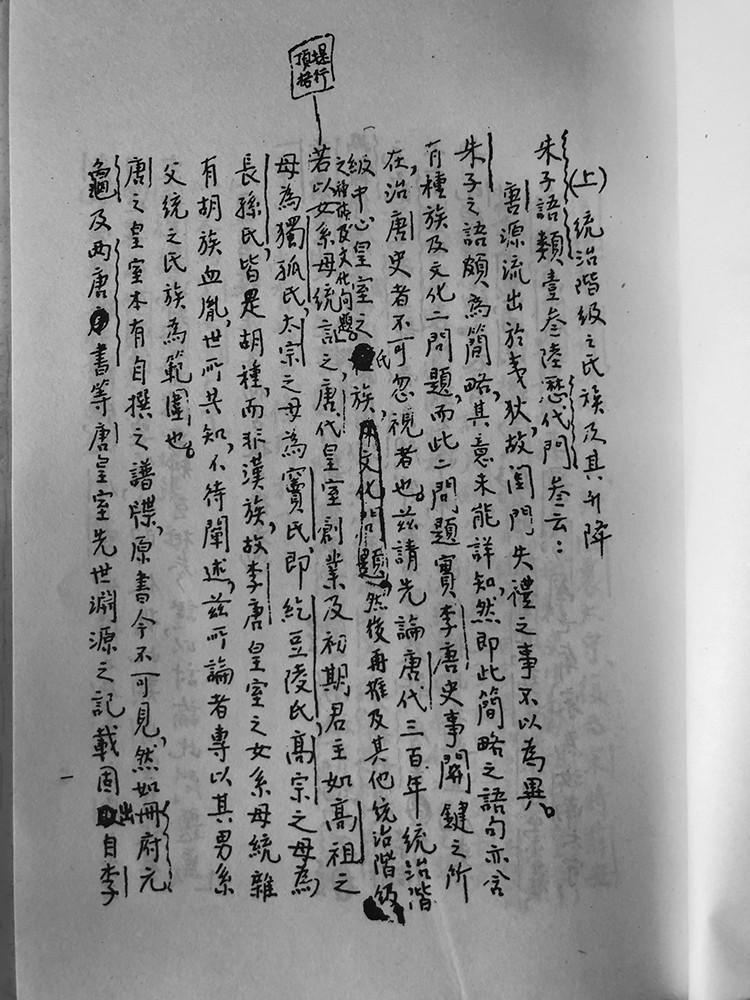 提行
頂格
(上) 統治階級之氏族及其升降
朱子語類壹叁陸歷代門叁云：
唐源流出於夷狄，故閨門失禮之事不以為異。
朱子之語頗為簡略，其意未能詳知，然即此簡略之語句亦含
有種族及文化二問題，而此二問題實李唐史事關鍵之所
在，治唐史者不可忽視者也。茲請先論唐代三百年統治階
級中心皇室之氏族，然後再推及其他統治階級
之種族及文化問題。
若以女系母統言之，唐代皇室創業及初期君主如高祖之
母為獨孤氏，太宗之母為竇氏，即紇豆陵氏，高宗之母為
長孫氏，皆是胡種，而非漢族，故李唐皇室之女系母統雜
有胡族血胤，世所共知，不待闡述，茲所論者專以其男系
父統之氏族為範圍也。
唐之皇室本有自撰之譜牒，原書今不可見，然如冊府元
龜及兩唐書等唐皇室先世淵源之記載固出自李
一